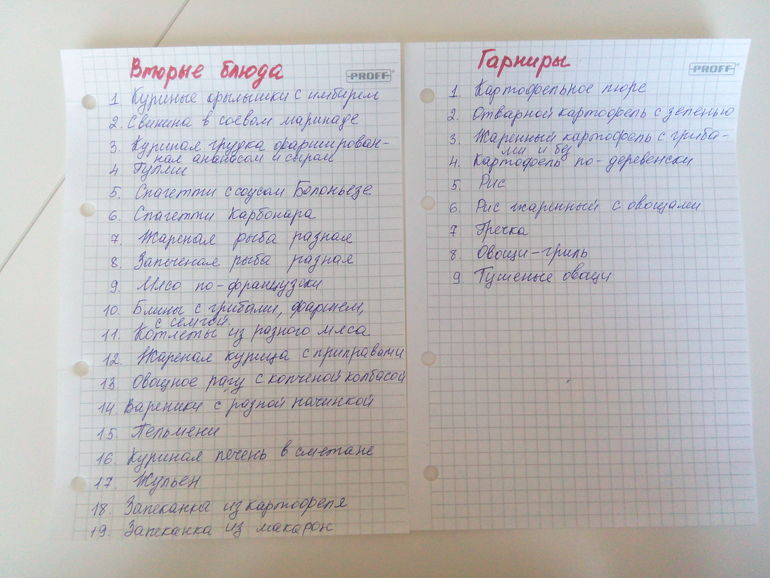 Вторые блюда
PROFF
1 Куриные крылышки с имбирем
2. Свинина в соевом маринаде
3. Куриная грудка фарширован-
ная ананасом и сыром
4 Гуляш
5. Спагетти с соусом Болоньезе
6. Спагетти Карбонара
7. Жареная рыба разная
8. Запеченая рыба разная
9 Мясо по-французски
10. Блины с грибами, фаршем,
с семгой.
11. Котлеты из разного мяса
12. Жареная курица с приправами
13. Овощное рагу с копченой колбасой
14. Вареники с разной начинкой
15. Пельмени
16. Куриная печень в сметане
17. Жульен
18. Запеканка из картофеля
19. Запеканка из макарон
Гарниры
PROFF
1. Картофельное пюре
2. Отварной картофель с зеленью
3. Жаренный картофель с гриба-
ми и без
4. Картофель по-деревенски
5. Рис
6. Рис жаренный с овощами
7 Гречка
8. Овощи-гриль
9. Тушеные овощи